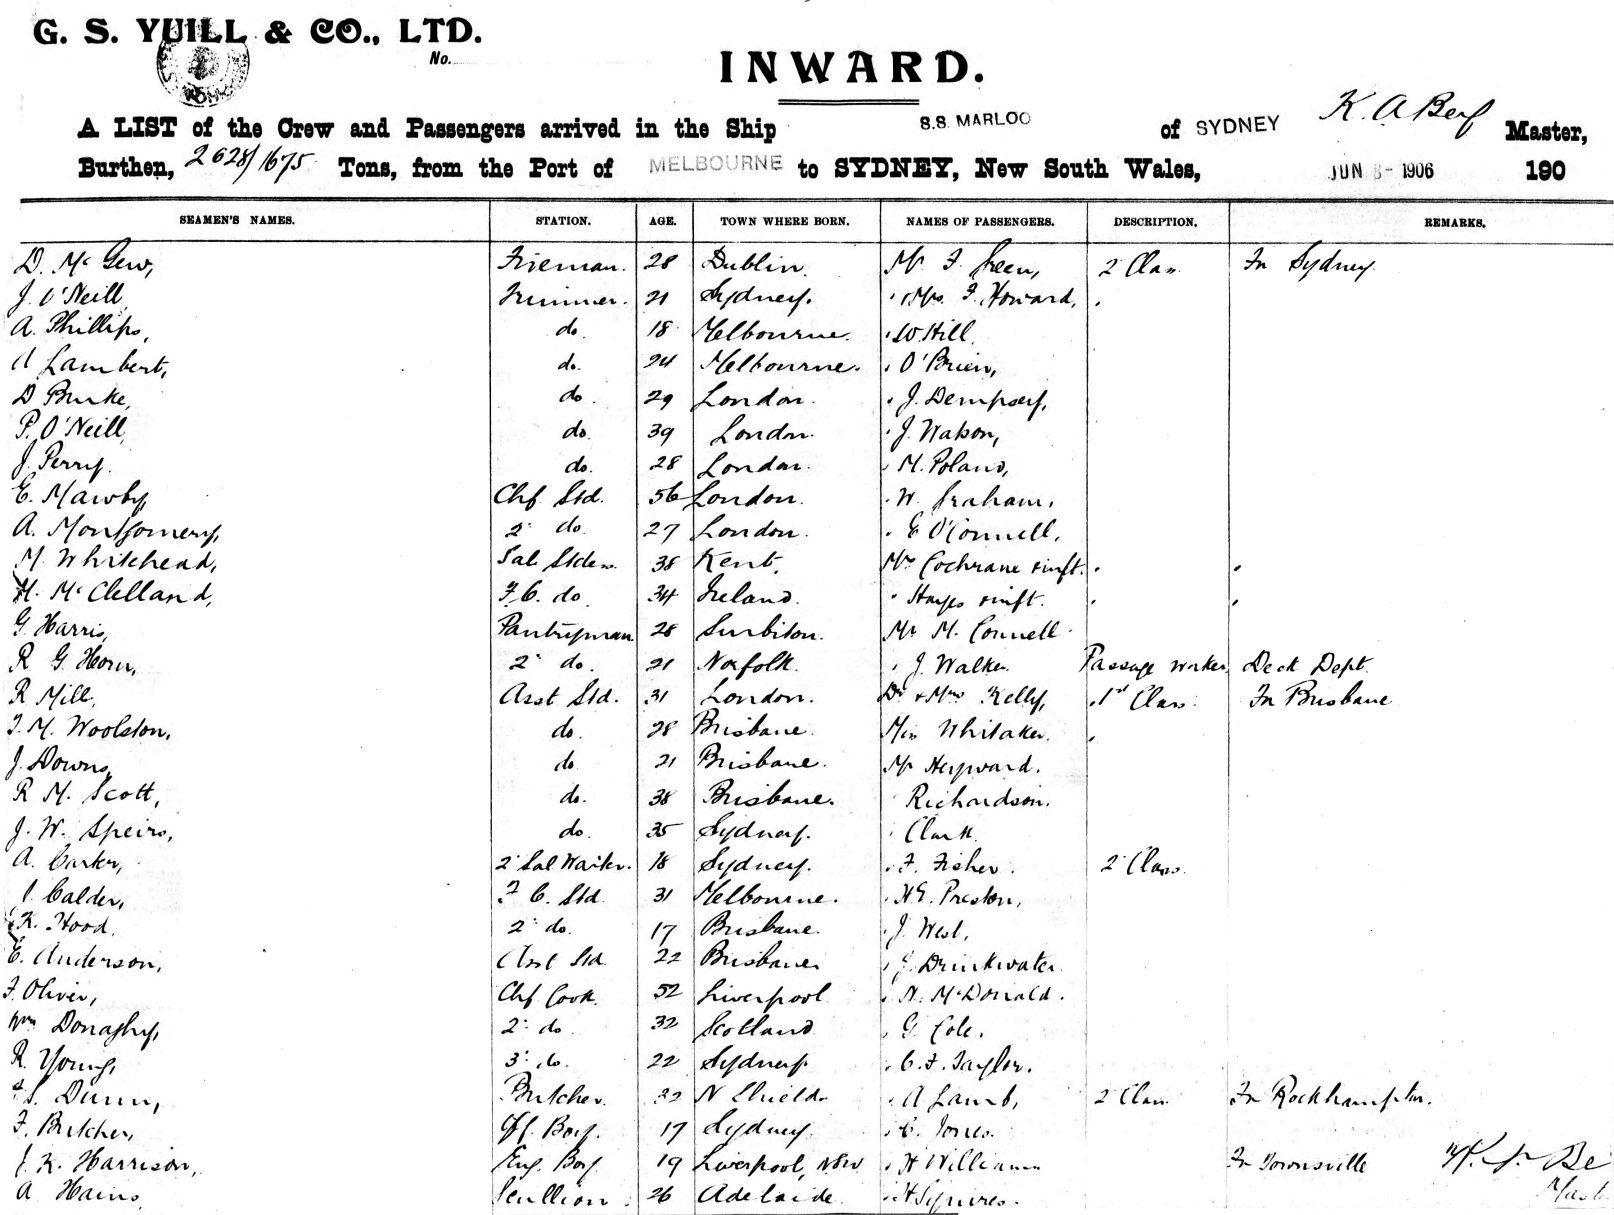 G. S. YUILL & CO., LTD.
No.
INWARD.
A LIST of the Crew and Passengers arrived in the Ship S.S. MARLOO of SYDNEY K. A. Master,
Burthen, 2628/1675 Tons, from the Port of MELBOURNE to SYDNEY, New South Wales, JUN 8- 1906 190
SEAMEN'S NAMES. STATION. AGE. TOWN WHERE BORN. NAMES OF PASSENGERS. DESCRIPTION. REMARKS.
D. Mc Fireman. 28 Dublin. Mr F. Green, 2 Class Fr Sydney.
J. O'Neill Trimmer. 21 Sydney. Mrs. F. Howard,
A. Phillips, do. 18 Melbourne. W Hill
A Lambert, do. 24 Melbourne. O'Brien,
D Burke, do 29 London. J. Dempsey,
P. O'Neill do. 39 London. J. Watson,
J. Perry. do. 28 London. M. Poland,
E. Mawby, Chf Std. 56 London. W. Graham,
A. Montgomery, 2 do 27 London. E O'Connell,
M. Whitehead, Sal Stdess. 38 Kent. Mrs Cochrane & inft.
M. McClelland, F.C. do 34 Ireland. Hayes & inft.
G. Harris, Pantryman 28 Surbiton. Mr M. Connell
R G. Horn, 2 do. 21 Norfolk. J. Walker. Passage worker Deck Dept.
R Mill, Asst Std. 31 London. Dr & Mrs Kelly, 1st Class. Fr Brisbane
T. M. Woolston, do. 28 Brisbane. Miss Whitaker.
J. Downs, do 21 Brisbane. Mr Heyward.
R M. Scott, do. 38 Brisbane. Richardson.
J. W. Speirs, do. 35 Sydney. Clark
A. Carter, 2 Sal Waiter. 18 Sydney. F. Fisher. 2 Class.
Calder, F C. Std. 31 Melbourne. H E. Preston,
K. Hood. 2 do. 17 Brisbane. J. West,
E. Anderson, Asst Std 22 Brisbane. Drinkwater.
F. Oliver, Chf Cook. 52 Liverpool N. McDonald.
Wm Donaghy, 2 do 32 Scotland G. Cole.
R. Young, 3 do. 22 Sydney C. F. Taylor.
S. Dunn, Butcher. 32 N Shields A Lamb, 2 Class Fr Rockhampton.
F. Butcher, Off. Boy. 17 Sydney C. Jones.
J. K. Harrison, Eng. Boy 19 Liverpool, NSW H Williams Fr Townsville
A Hains Scullion. 26 Adelaide. H Squires.